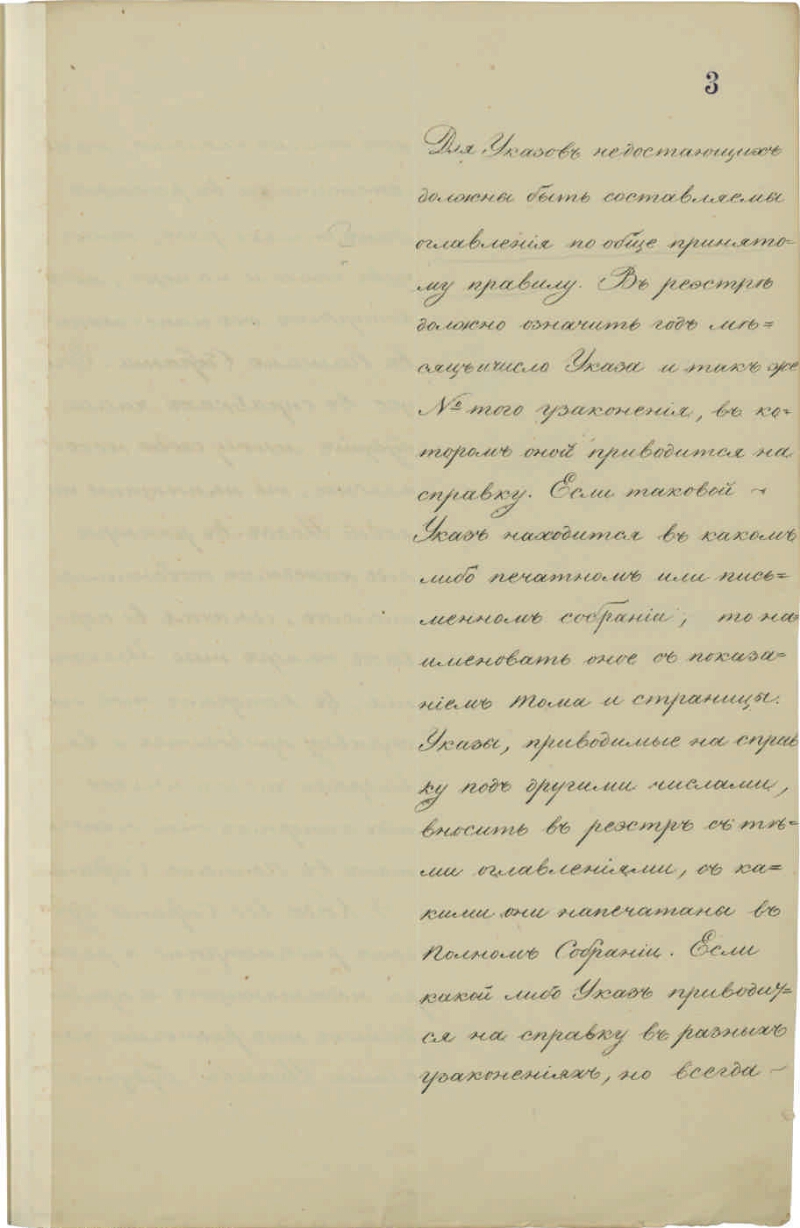 3
Для Указовъ недостающихъ
должны быть составляемы
оглавленія по обще принято=
му правилу. Въ реэстрѣ
должно означить годъ мѣ=
сяцъ и число Указа и такъ же
№ того узаконенія, въ ко=
торомъ оной приводится на
справку. Если таковой
Указъ находится въ какомъ
либо печатномъ или пись=
менномъ собраніи, то на
именовать оное съ показа=
ніемъ тома и страницы.
Указы, приводимые на справ
ку подъ другими числами,
вносить въ реэстръ съ тѣ=
ми оглавленіями, съ ка=
кими они напечатаны въ
Полномъ Собраніи. Если
какой либо Указъ приводит=
ся на справку въ разныхъ
узаконеніяхъ, но всегда